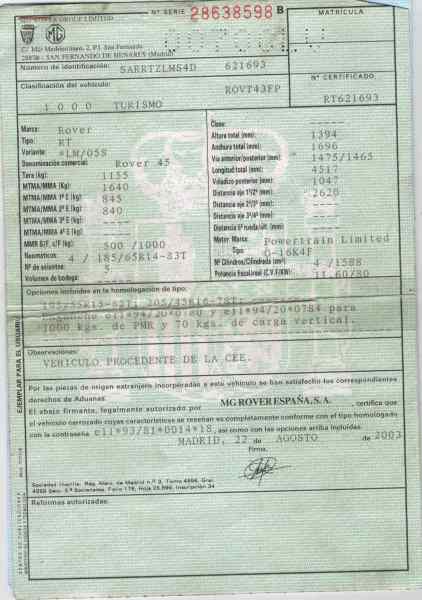 Nº SERIE 28638598 B
MATRÍCULA
ROVER GROUP LIMITED
MG
C/ Mar Mediterráneo, 2, P.I. San Fernando
28830 - SAN FERNANDO DE HENARES (Madrid)
Número de identificación: SARRTZLMS4D 621693
Nº CERTIFICADO
Clasificación del vehículo: ROVT43FP
RT621693
1000 TURISMO
Marca: Rover
Tipo: RT
Variante: *LM/05S
Denominación comercial: Rover 45
Tara (kg) 1155
MTMA/MMA (Kg) 1640
MTMA/MMA 1º E (kg) 845
MTMA/MMA 2º E (kg) 840
MTMA/MMA 3º E (kg) ----
MTMA/MMA 4º E (kg) ----
MMR S/F. c/F. c/Fren (kg) 500 /1000
Neumáticos: 4 / 185/65R14-83T
Nº de asientos: 5
Volumen de bodega: -----
Clase: -----
Altura total (mm): 1394
Anchura total (mm): 1696
Vía anterior/posterior (mm): 1475/1465
Longitud total (mm): 4517
Voladizo posterior (mm): 1047
Distancia eje 1º/2º (mm): 2620
Distancia eje 2º/3º (mm): ----
Distancia eje 3º/4º (mm): ----
Distancia 5ª rueda/últ. (mm): ----
Motor: Marca: Powertrain Limited
Tipo O-16K4F
Nº Cilindros/Cilindrada (cm³): 4 /1588
Potencia fiscal/real (C.V.F/KW) 11,60/80
Opciones incluidas en la homologación de tipo:
e11*94/20*0780 y e11*94/20*0784 para
1000 kgs. de PMR y 70 kgs. de carga vertical.
Observaciones:
VEHICULO PROCEDENTE DE LA CEE.
EJEMPLAR PARA EL USUARIO
Por las piezas de origen extranjero incorporadas a este vehículo se han satisfecho los correspondientes
derechos de Aduanas.
El abajo firmante, legalmente autorizado por MG ROVER ESPAÑA, S.A. , certifica que
el vehículo carrozado cuyas características se reseñan es completamente conforme con el tipo homologado
con la contraseña e11*93/81*0014*18, así como con las opciones arriba incluidas.
MADRID, 22 de AGOSTO de 2003
Firma:
Reformas autorizadas: